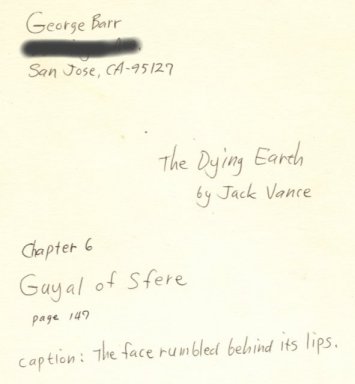 George Barr
San Jose, CA-95127
The Dying Earth
by Jack Vance
Chapter 6
Guyal of Sfere
page 147
caption: The face rumbled behind its lips.